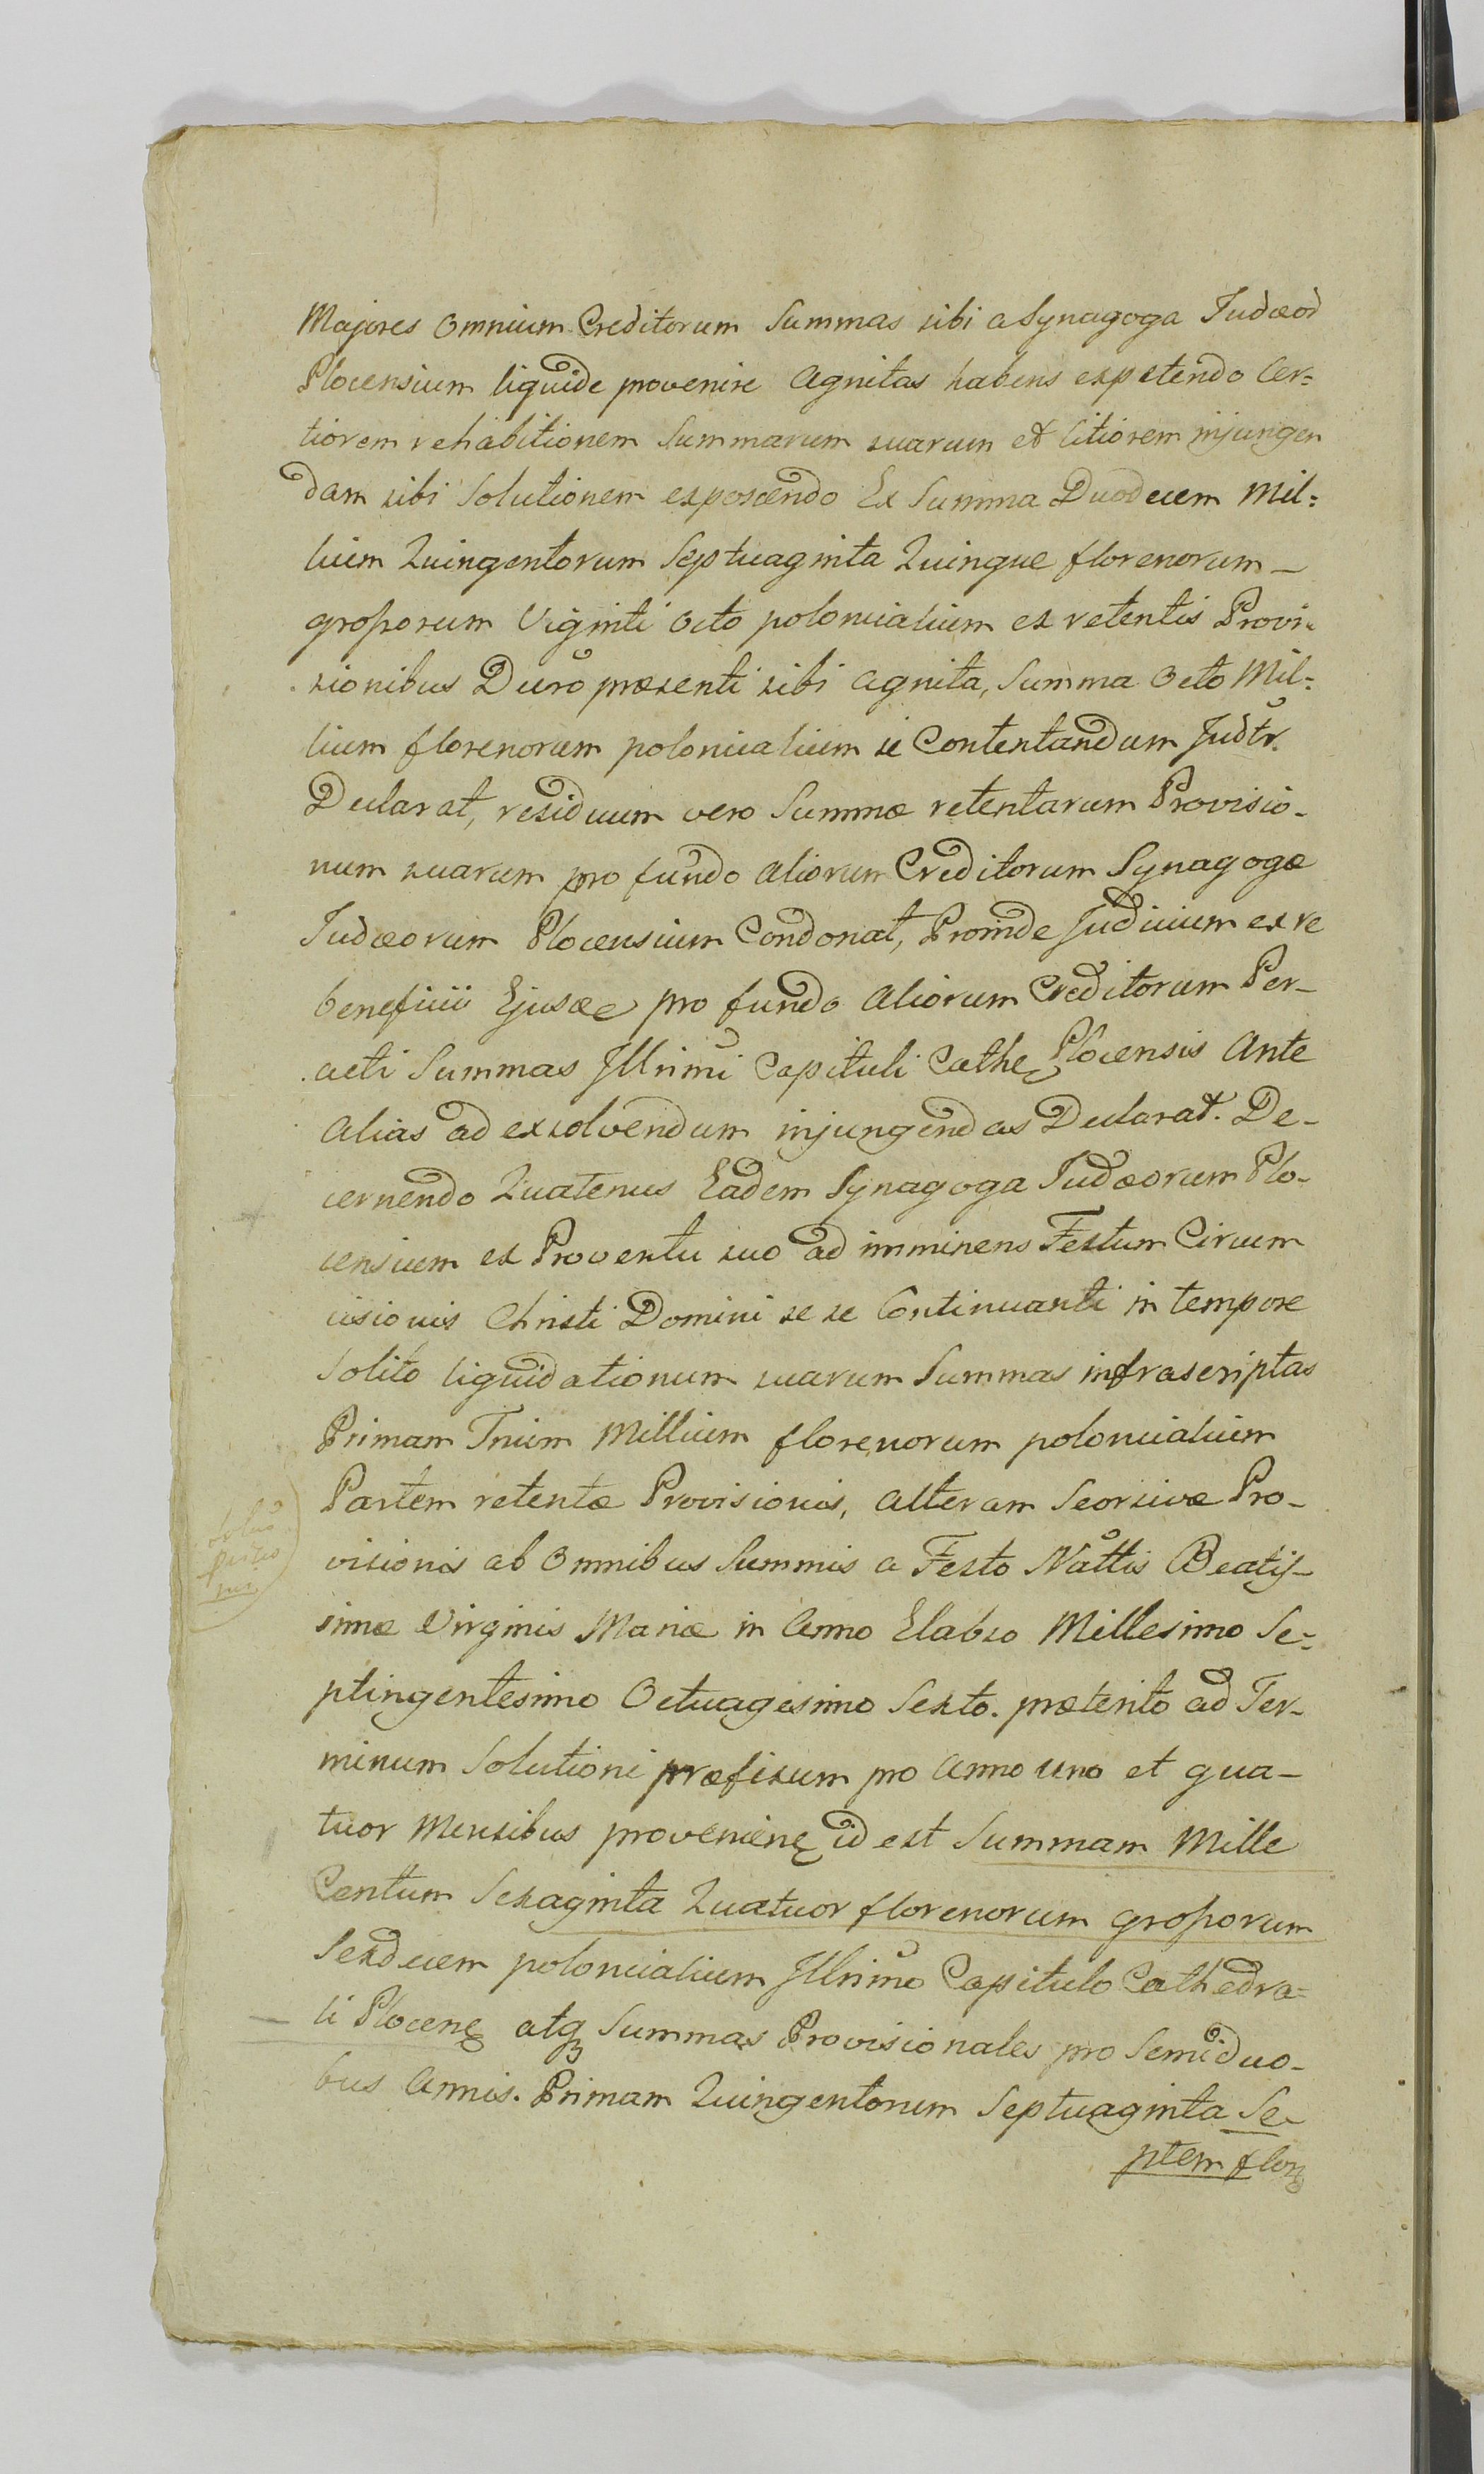 Majores Omnium Creditorum Summas sibi a Synagoga Judæod
Plocensium liquide provenire Agnitas habens expetendo Cer=
tiorem rehabitionem Summarum suarum et Citiorem injungen
dam sibi Solutionem exposcendo Ex Summa Duodecem Mil=
lium Quingentorum Septuaginta Quinque florenorum –
grossorum Viginti Octo polonicalium ex retentis Provi-
sionibus Decro præsenti sibi agnita, Summa Octo Mil=
lium florenorum polonicalium se Contentandum Judtr.
Declarat, residuum vero Summæ retentarum Provisio-
num suarum pro fundo aliorum Creditorum Synagogæ
Judæorum Plocensium Condonat, Proinde Judicium ex re
beneficii Ejusdē pro fundo aliorum Creditorum Per-
acti Summas Illrimi Capituli Cathe Plocensis Ante
alias ad exsolvendum injungendas Declarat. De-
cernendo Quatenus Eadem Synagoga Judæorum Plo-
censium ex Proventu suo ad imminens Festum Circum
cisionis Christi Domini se se Continuanti in tempore
Solito liquidationum suarum Summas infrascriptas
Primam Trium Millium florenorum polonicalium
Partem retentæ Provisionis, alteram Seorsivæ Pro-
visionis ab Omnibus Summis a Festo Nattis Beatis-
simæ Virginis Mariæ in Anno Elabso Millesimo Se-
ptingentesimo Octuagesimo Sexto. præterito ad Ter-
minum Solutioni præfixum pro Anno uno et qua-
tuor Mensibus provenienę id est Summam Mille
Centum Sexaginta Quatuor florenorum grossorum
Sexdecem polonicalium Illrimo Capitulo Cathedra=
li Plocenę atq Summas Provisionales pro Semiduo-
bus Annis. Primam Quingentorum Septuaginta Se-
ptem flor